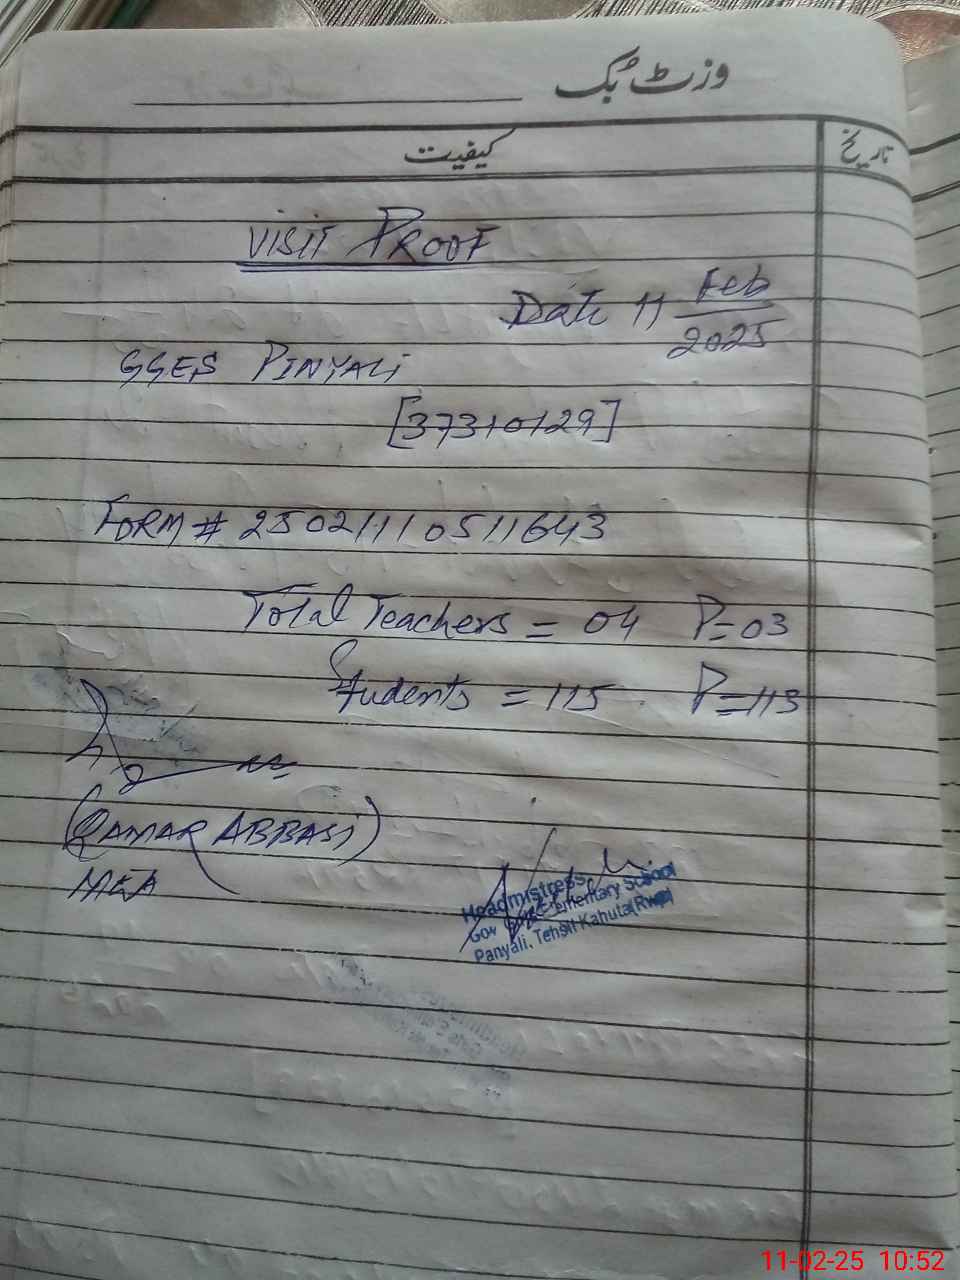 وزٹ بک
کیفیت
تاریخ
VISIT PROOF
Date 11 Feb
2025
GGES PINYALI
[37310129]
FORM # 250211110511643
Total Teachers = 04 P=03
Students = 115 P=113
(QAMAR ABBASI)
MEA
Headmistress
Gov Girls Elementary School
Panyali, Tehsil Kahuta(Rwp)
11-02-25 10:52